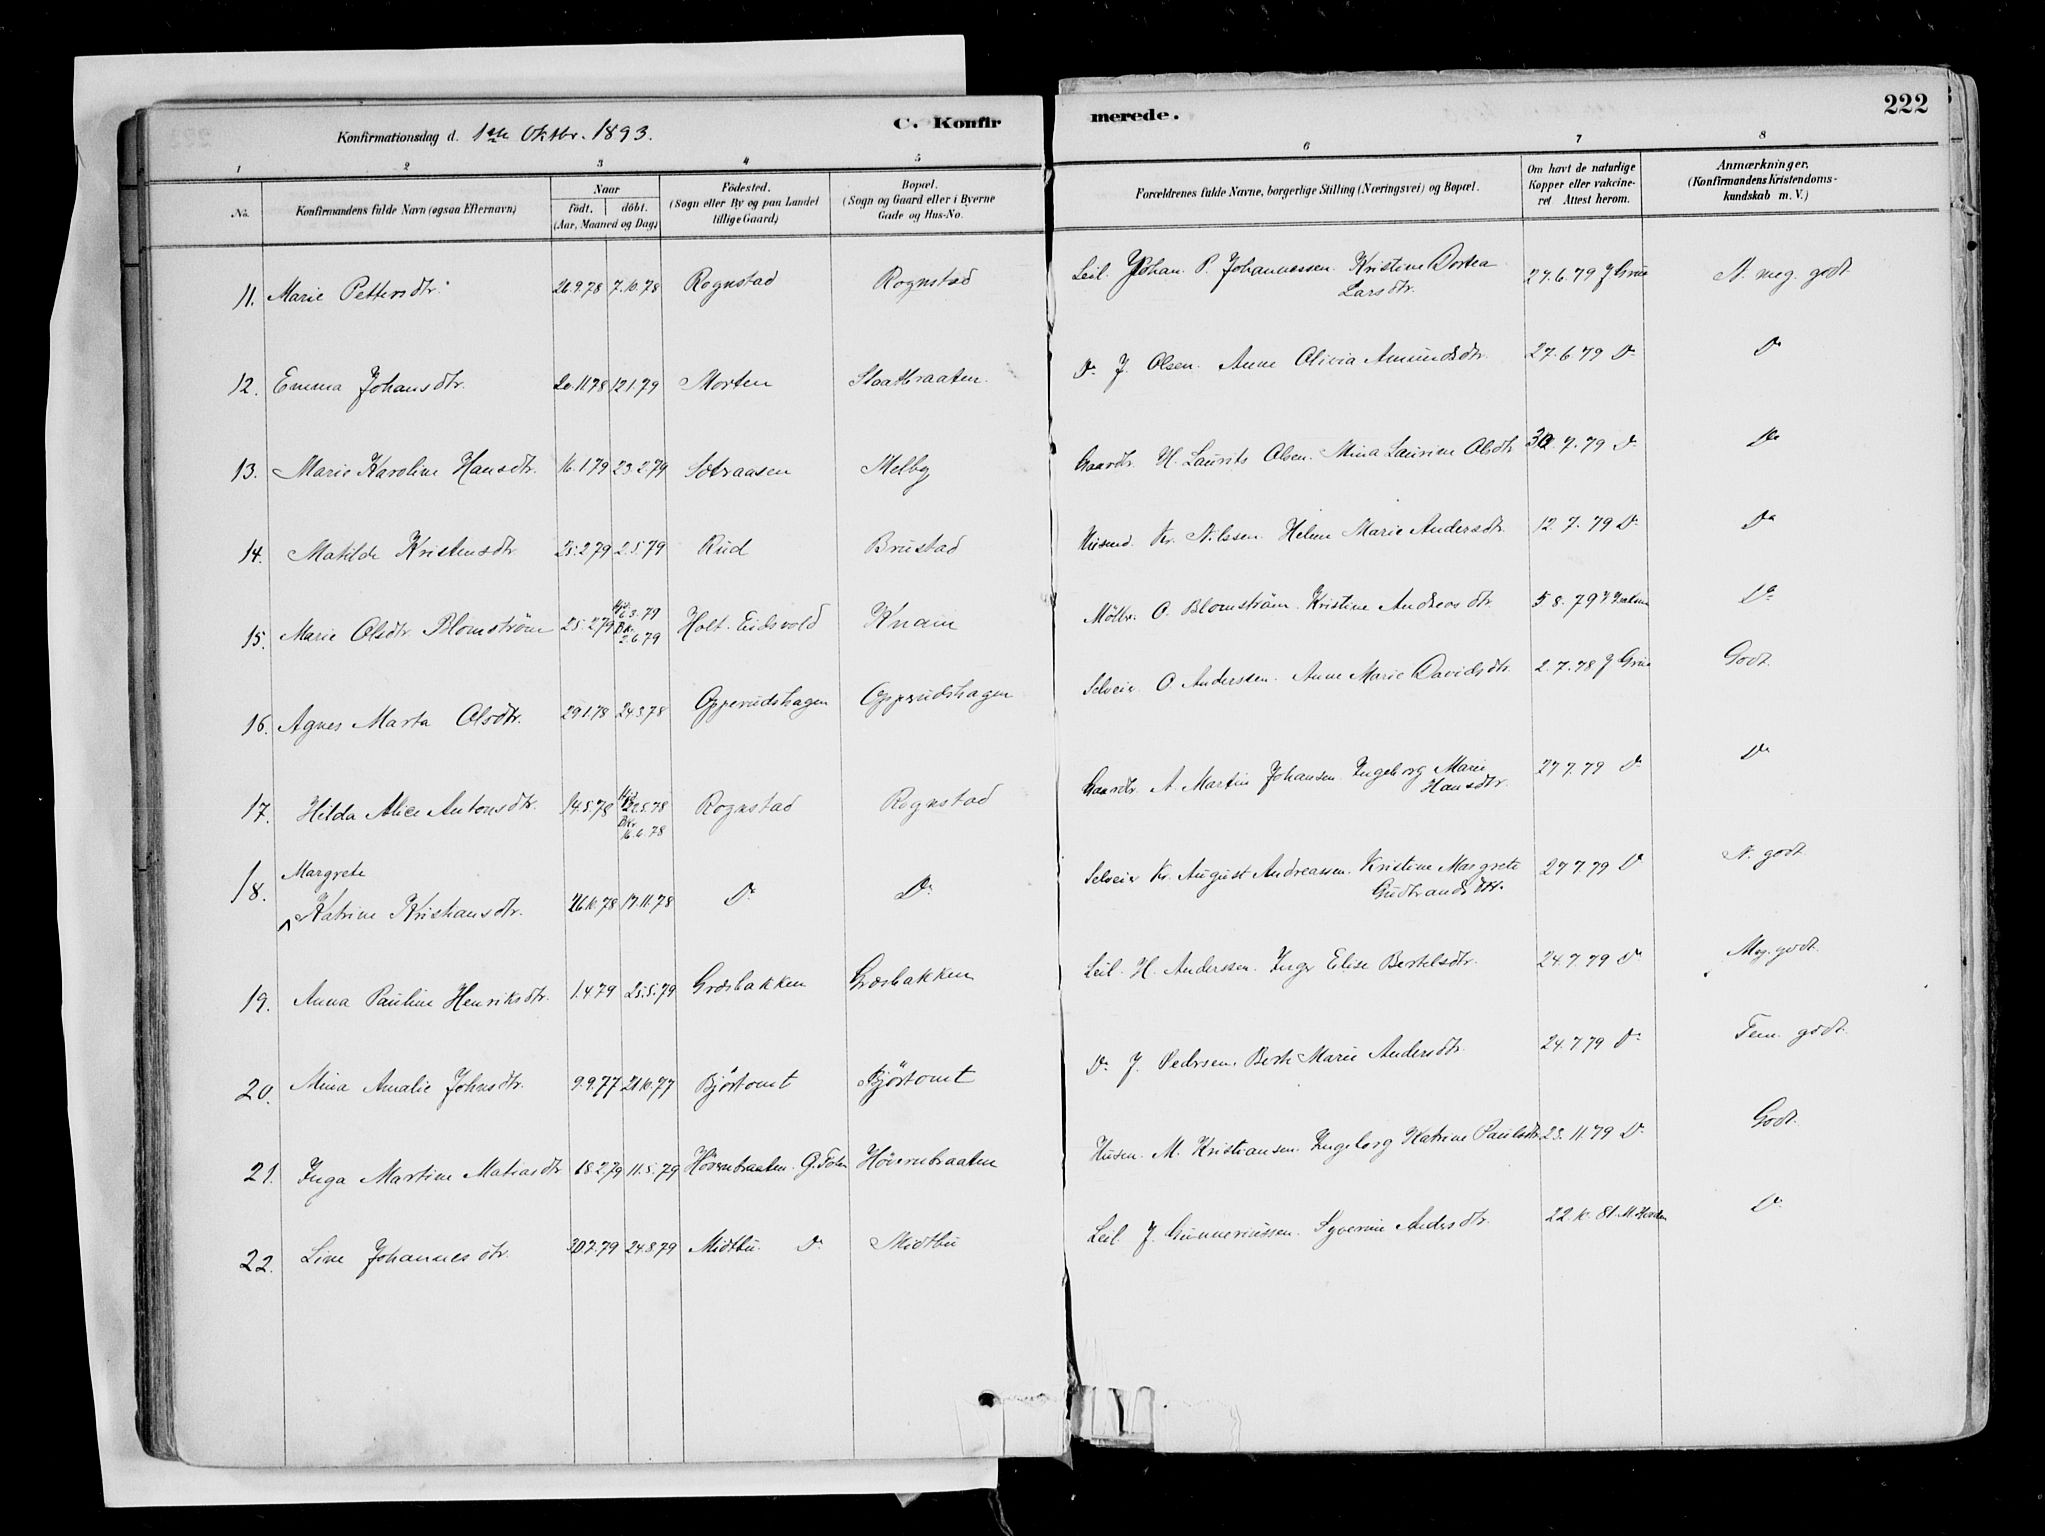 222
C. Konfirmerede.
Konfirmationsdag d. 1ste Oktbr. 1893.
1 2 3 4 5 6 7 8
No. Konfirmandens fulde Navn (ogsaa Efternavn) Naar födt. döbt. (Aar, Maaned og Dag) Födested. (Sogn eller By og paa Landet tillige Gaard) Bopæl. (Sogn og Gaard eller i Byerne Gade og Hus-No. Forældrenes fulde Navne, borgerlige Stilling (Næringsvei) og Bopæl. Om havt de naturlige Kopper eller vakcineret Attest herom. Anmærkninger. (Konfirmandens Kristendomskundskab m. V.)
11. Marie Pettersdtr. 26.9.78 7.10.78 Rognstad Rognstad Leil. Johan P. Johannessen. Kristine Dortea Larsdtr. 27.6.79 J Grue N. meg. godt
12. Emma Johansdtr. 20.11.78 12.1.79 Morten Slaatbraaten. Do J. Olsen. Anne Olivia Amundsdtr. 27.6.79 Do Do
13. Marie Karoline Hansdtr. 16.1.79 23.2.79 Sötraasen Melby Gaardbr. H. Laurits Olsen. Mina Laurine Olsdtr 30.7.79 Do Do
14. Matilde Kristensdtr. 25.2.79 2.5.79 Rud Brustad Husmd. Kr. Nilssen. Helene Marie Andersdtr. 12.7.79 Do Do
15. Marie Olsdtr Blomström 25.2.79 Hjd 6.3.79 Bkr. 2.6.79 Holt. Eidsvold Knain Mölbr. O. Blomström. Kristine Andreasdtr. 5.8.79 Do
16. Agnes Marta Olsdtr. 29.1.78 24.3.78 Opperudshagen Opperudshagen Selveier O. Anderssen. Anne Marie Davidsdtr. 2.7.78 J Grue Godt.
17. Hilda Alice Antonsdtr. 14.5.78 Hjd 22.5.78 Bkr. 16.6.78 Rognstad Rognstad Gaardbr. A. Martin Johansen. Ingeborg Marie Hansdtr. 27.7.79 Do Do
18. Margrete Katrine Kristiansdtr. 26.10.78 17.11.78 Do Do Selveier Kr. August Andreassen. Kristine Margrete Gudbrandsdtr. 27.7.79 Do N. godt
19. Anna Pauline Henriksdtr. 1.4.79 25.5.79 Græsbakken Græsbakken Leil. H. Anderssen. Inge Elise Bertelsdtr. 24.7.79 Do Meg. godt.
20. Mina Amalie Johnsdtr. 9.9.77 21.10.77 Björtomt Björtomt Do J. Pedersen. Berte Marie Andersdtr. 24.7.79 Do Tem. godt.
21. Inga Martine Matiasdtr 18.2.79 11.5.79 Hövernbraaten. Ö. Toten Hövernbraaten Husm. M. Kristiansen. Ingeborg Katrine Paulsdtr. 23.11.79 Do Godt.
22. Line Johannesdtr. 30.7.79 24.8.79 Midtbu. Do Midtbu Leil. J. Gunneriussen. Syverine Andersdtr. 22.10.81. Do